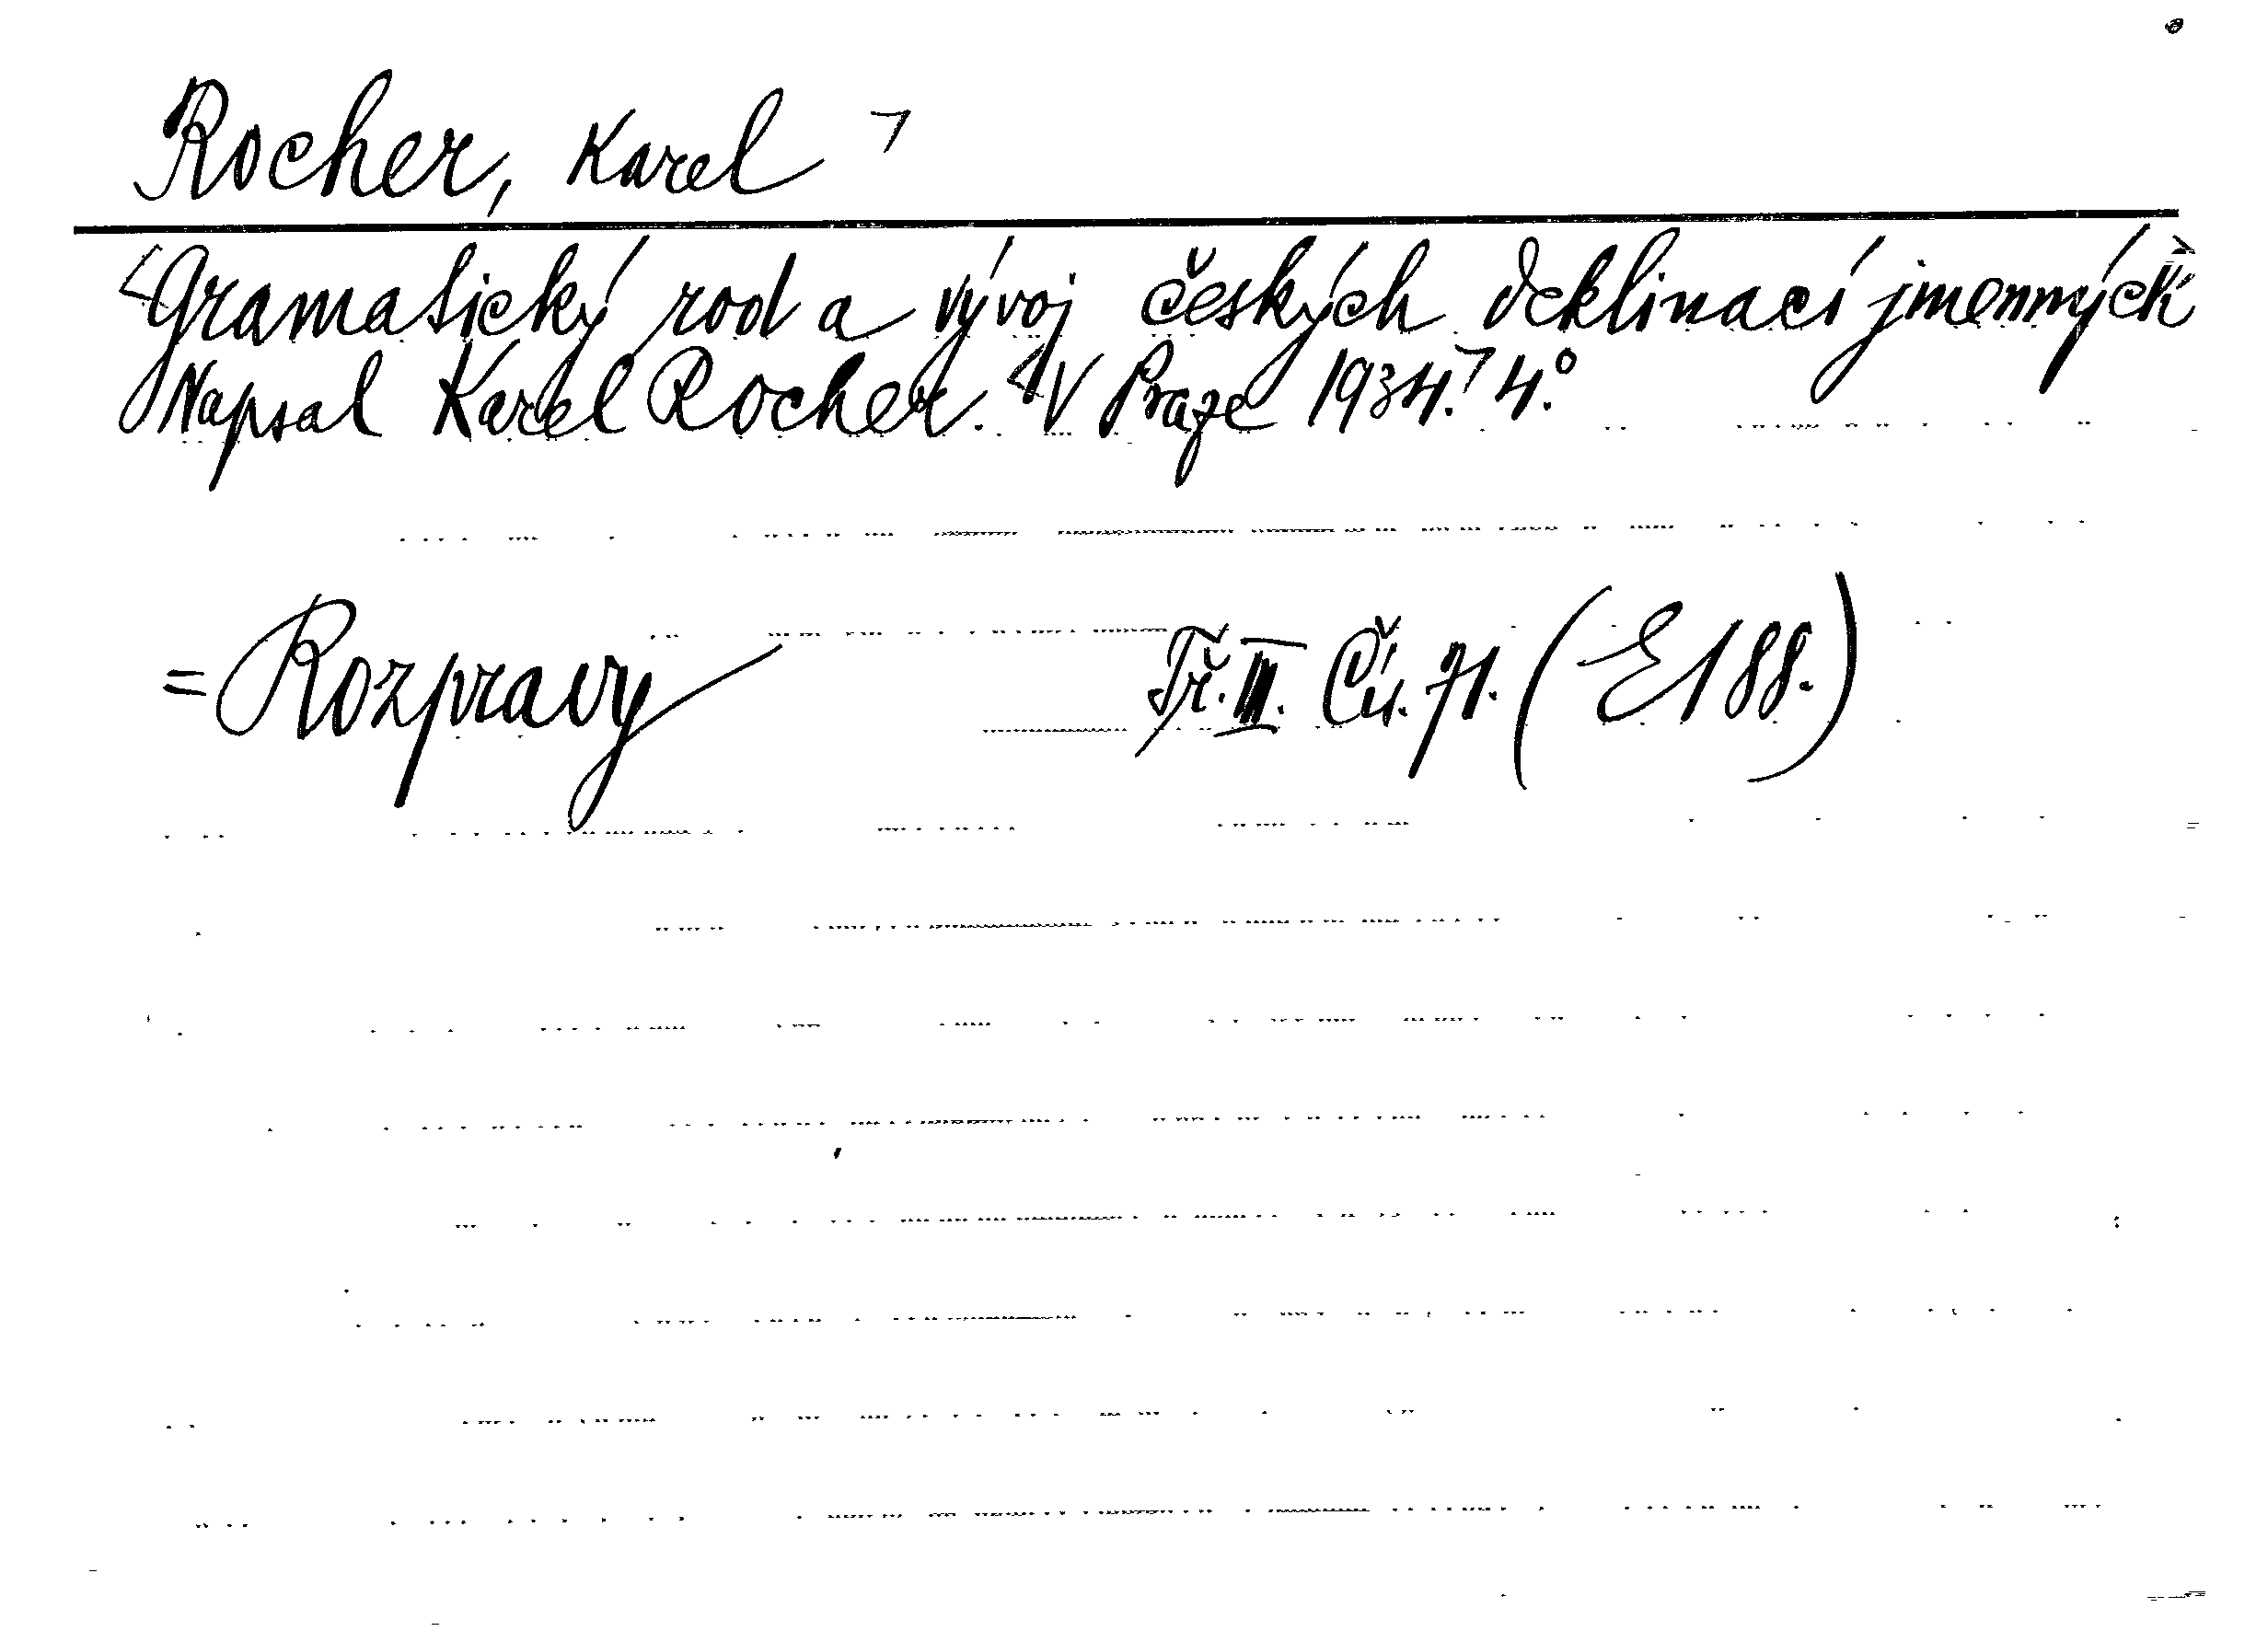 Rocher, Karel ㄱ
<Gramatický rod a vývoj českých deklinací jmenných>
Napsal Karel Rocher. <V Praze 1934.> 4.°
= Rozpravy Tř. III. Čís. 71. (E 188.)